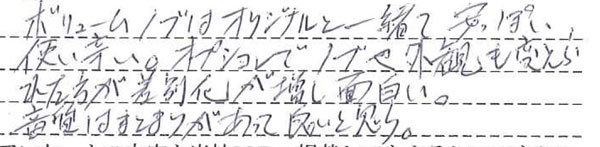 ボリュームノブはオリジナルと一緒で安っぽい、
使い辛い。オプションでノブや外観も変えら
れた方が差別化が増し面白い。
音質はまとまりがあって良いと思う。